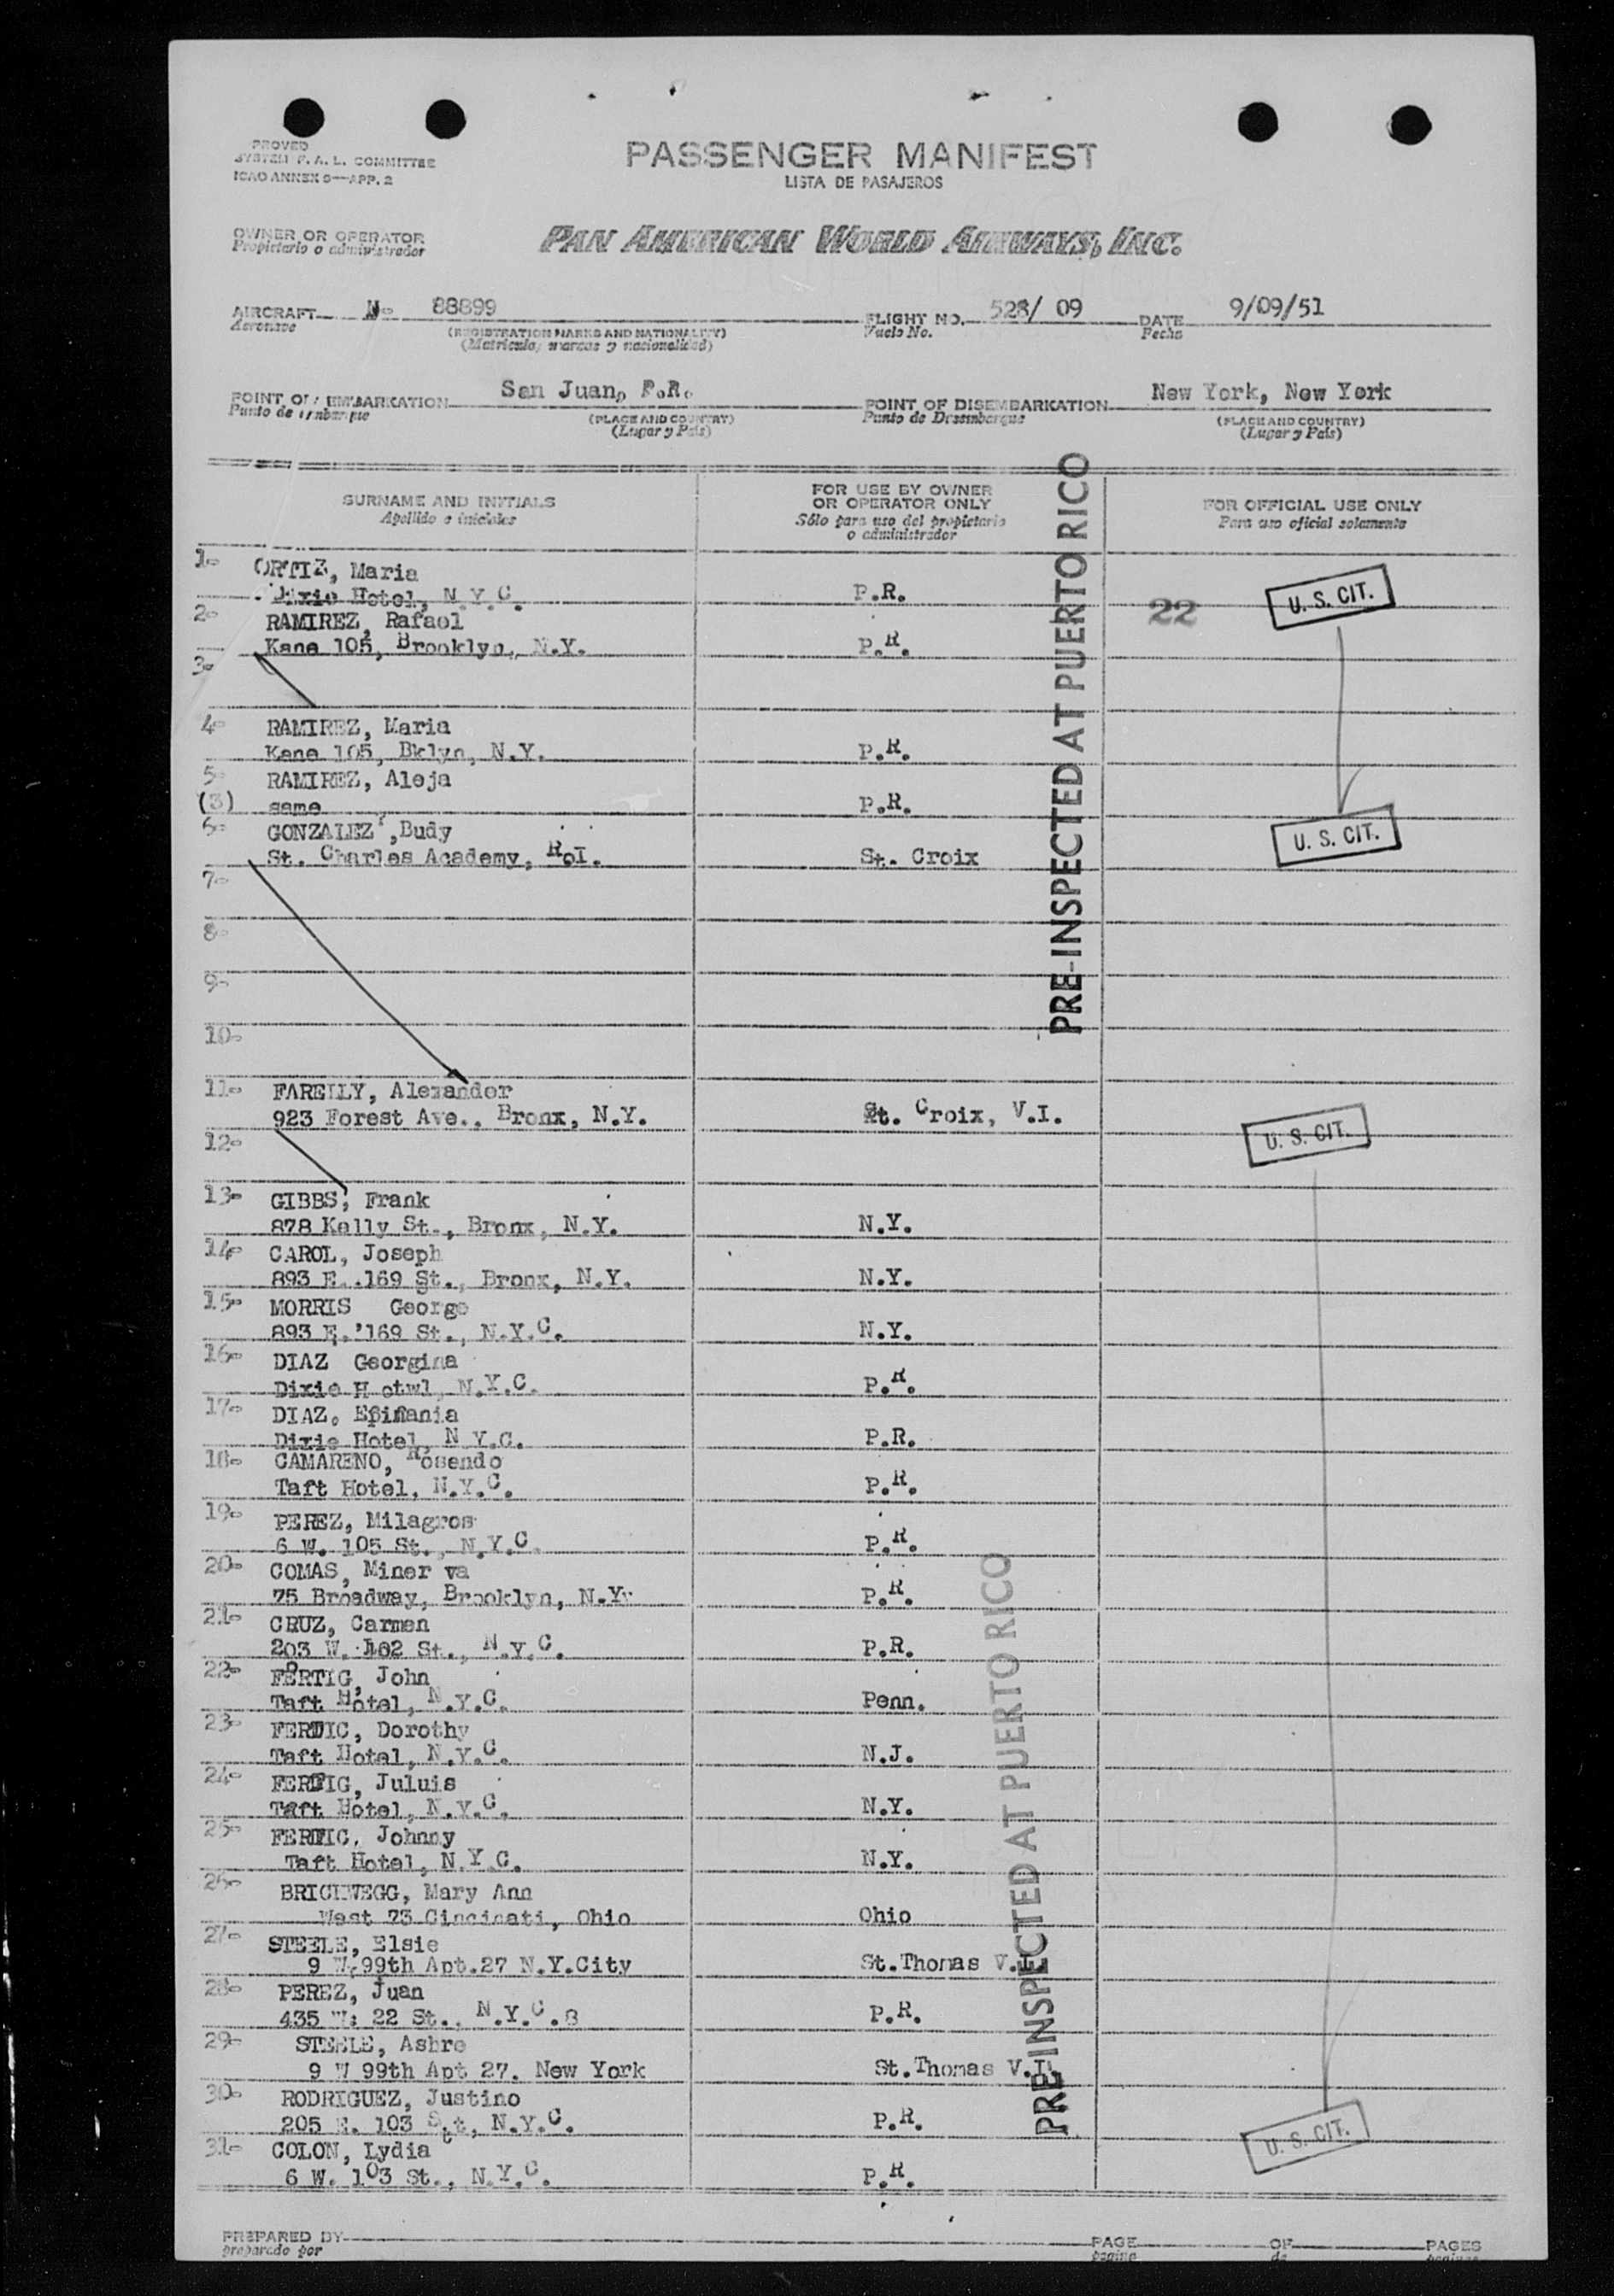 PROVED
SYSTEM F. A. L. COMMITTEE
ICAO ANNEX 9—APP. 2
PASSENGER MANIFEST
LISTA DE PASAJEROS
OWNER OR OPERATOR
Propietario o administrador
PAN AMERICAN WORLD AIRWAYS, INC.
AIRCRAFT N- 88899
Aeronave
(REGISTRATION MARKS AND NATIONALITY)
(Matricula, marcas y nacionalidad)
FLIGHT NO. 528/ 09
Vuelo No.
DATE 9/09/51
Fecha
POINT OF EMBARKATION San Juan, P.R.
Punto de embarque
(PLACE AND COUNTRY)
(Lugar y País)
POINT OF DISEMBARKATION New York, New York
Punto de Desembarque
(PLACE AND COUNTRY)
(Lugar y País)
SURNAME AND INITIALS
Apellido e iniciales
FOR USE BY OWNER
OR OPERATOR ONLY
Sólo para uso del propietario
o administrador
FOR OFFICIAL USE ONLY
Para uso oficial solamente
PRE-INSPECTED AT PUERTO RICO
1- ORTIZ, Maria
Dixie Hotel, N.Y.C. P.R. 22 U. S. CIT.
2- RAMIREZ, Rafael
Kane 105, Brooklyn, N.Y. P.R.
3-
4- RAMIREZ, Maria
Kane 105, Bklyn, N.Y. P.R.
5- RAMIREZ, Aleja
(3) same P.R.
6- GONZALEZ ,Budy U. S. CIT.
St. Charles Academy, R.I. St. Croix
7-
8-
9-
10-
11- FAREILY, Alexander
923 Forest Ave., Bronx, N.Y. St. Croix, V.I. U. S. CIT.
12-
13- GIBBS, Frank
878 Kelly St., Bronx, N.Y. N.Y.
14- CAROL, Joseph
893 E. 169 St., Bronx, N.Y. N.Y.
15- MORRIS George
893 E. 169 St., N.Y.C. N.Y.
16- DIAZ Georgina
Dixie H otwl, N.Y.C. P.R.
17- DIAZ. Epifania
Dixie Hotel, N Y.C. P.R.
18- CAMARENO, Rosendo
Taft Hotel, N.Y.C. P.R.
19- PEREZ, Milagros
6 W. 105 St., N.Y.C. P.R.
20- COMAS, Miner va
75 Broadway, Brooklyn, N.Y. P.R.
21- CRUZ, Carmen
203 W. 102 St., N.Y.C. P.R.
22- FERTIG, John
Taft Hotel, N.Y.C. Penn.
23- FERTIG, Dorothy
Taft Hotel, N.Y.C. N.J.
24- FERTIG, Juluis
Taft Hotel, N.Y.C. N.Y.
25- FERTIG, Johnny
Taft Hotel, N.Y.C. N.Y.
26- Mary Ann
West 73 Cincinati, Ohio Ohio
27- STEELE, Elsie
9 W.99th Apt.27 N.Y.City St.Thomas V.I.
28- PEREZ, Juan
435 W. 22 St., N.Y.C.8 P.R.
29- STEELE, Asbre
9 W 99th Apt 27, New York St.Thomas V.I.
30- RODRIGUEZ, Justino
205 E. 103 St, N.Y.C. P.R.
31- COLON, Lydia U. S. CIT.
6 W. 103 St., N.Y.C. P.R.
PRE-INSPECTED AT PUERTO RICO
PREPARED BY
preparado por
PAGE OF PAGES
página de páginas